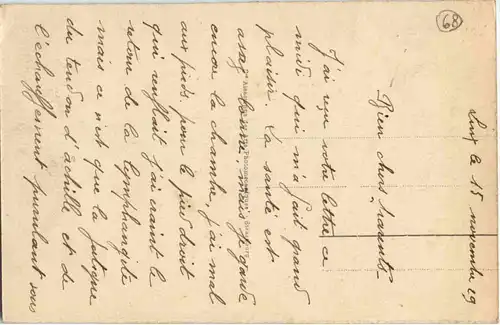 68
le 15 novembre 29
Bien chers parents
J'ai reçu votre lettre ce
midi qui m'a fait grand
plaisir. La santé est
assez bonne, mais je garde
encore la chambre, j'ai mal
aux pieds pour le pied droit
qui renflait j'ai craint le
retour de la lymphangite
mais ce n'est que la fatigue
du tendon d'achille et de
l'échauffement purulent sous